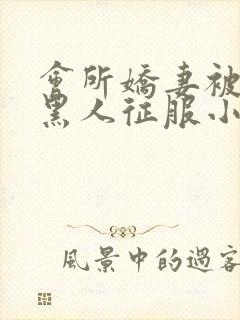 會所嬌妻被
黑人征服小
風景中的過客